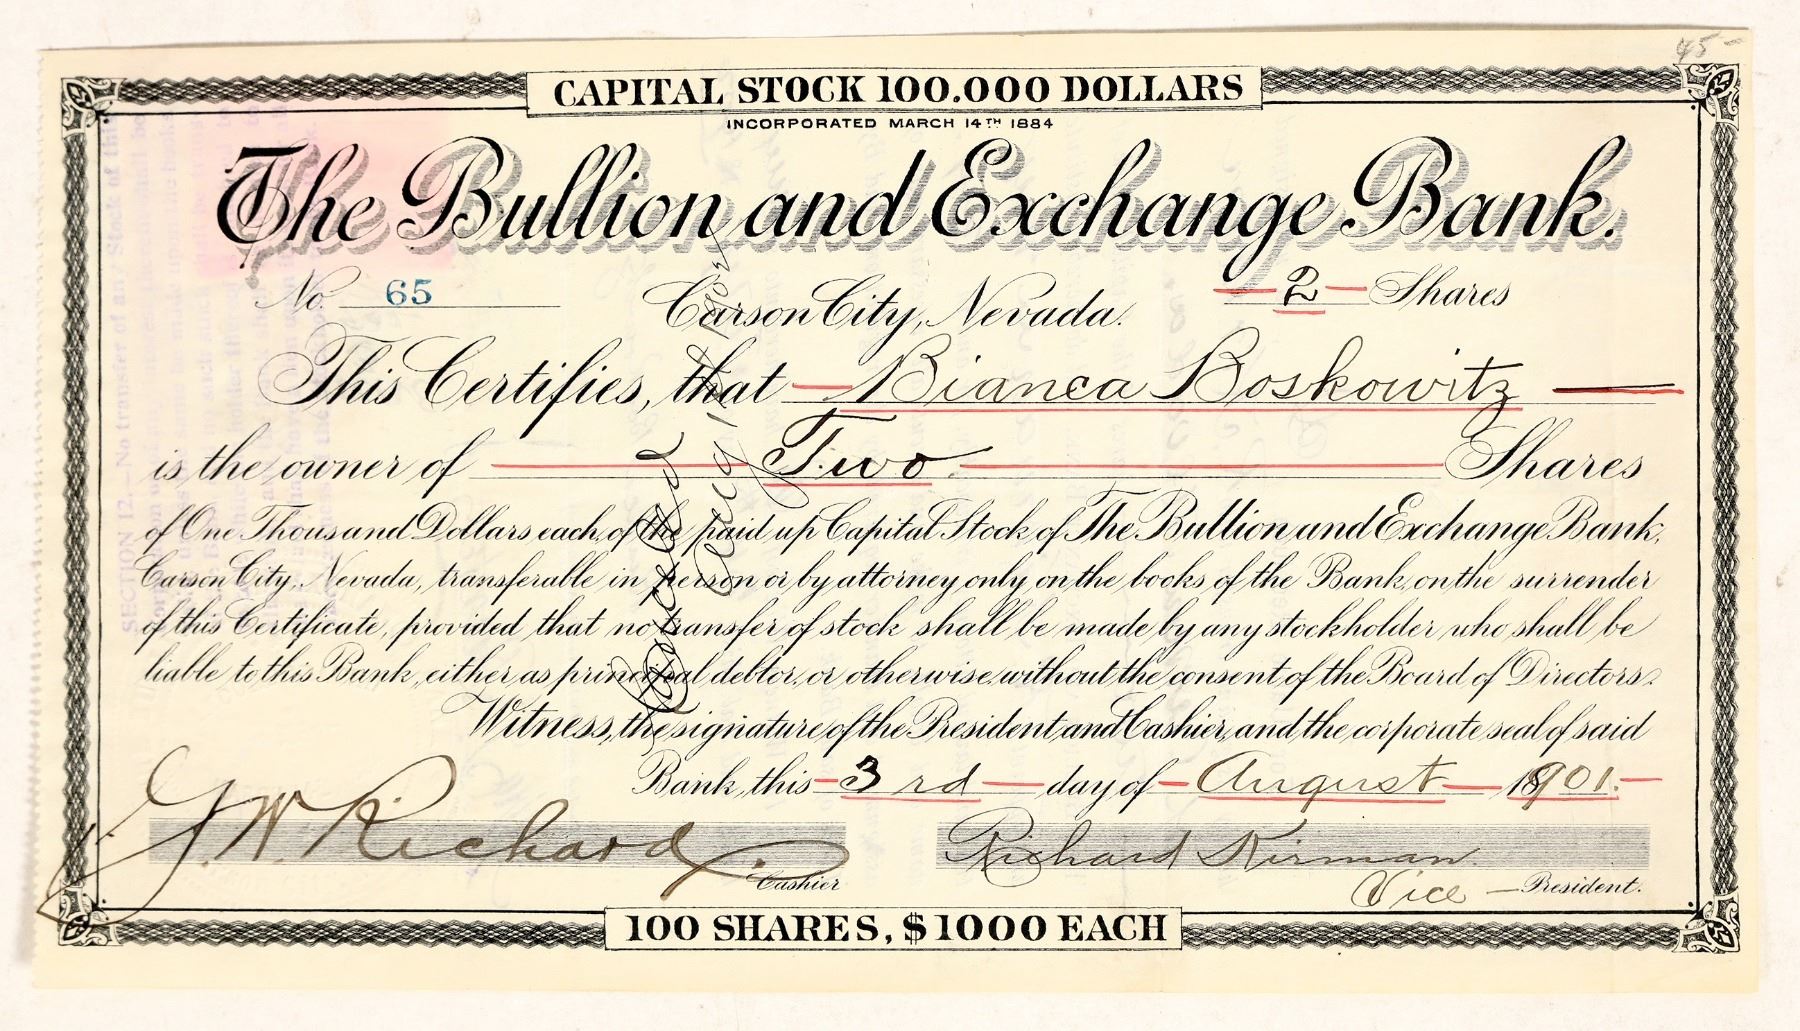 45-
CAPITAL STOCK 100.000 DOLLARS
INCORPORATED MARCH 14TH 1884
The Bullion and Exchange Bank.
No. 65
Carson City, Nevada.
2 Shares
This Certifies, that Bianca Boskowitz
is the owner of Two Shares
of One Thousand Dollars each, of the paid up Capital Stock of The Bullion and Exchange Bank,
Carson City, Nevada, transferable in person or by attorney only, on the books of the Bank, on the surrender
of this Certificate, provided that no transfer of stock shall be made by any stockholder who shall be
liable to this Bank, either as principal debtor, or otherwise, without the consent of the Board of Directors.
Witness, the signature of the President and Cashier, and the corporate seal of said
Bank, this 3rd day of August 1901.
G. W. Richard
Cashier
Richard Kirman
Vice - President.
100 SHARES, $1000 EACH
Cancelled
Aug
SECTION 12.—No transfer of any Stock of this